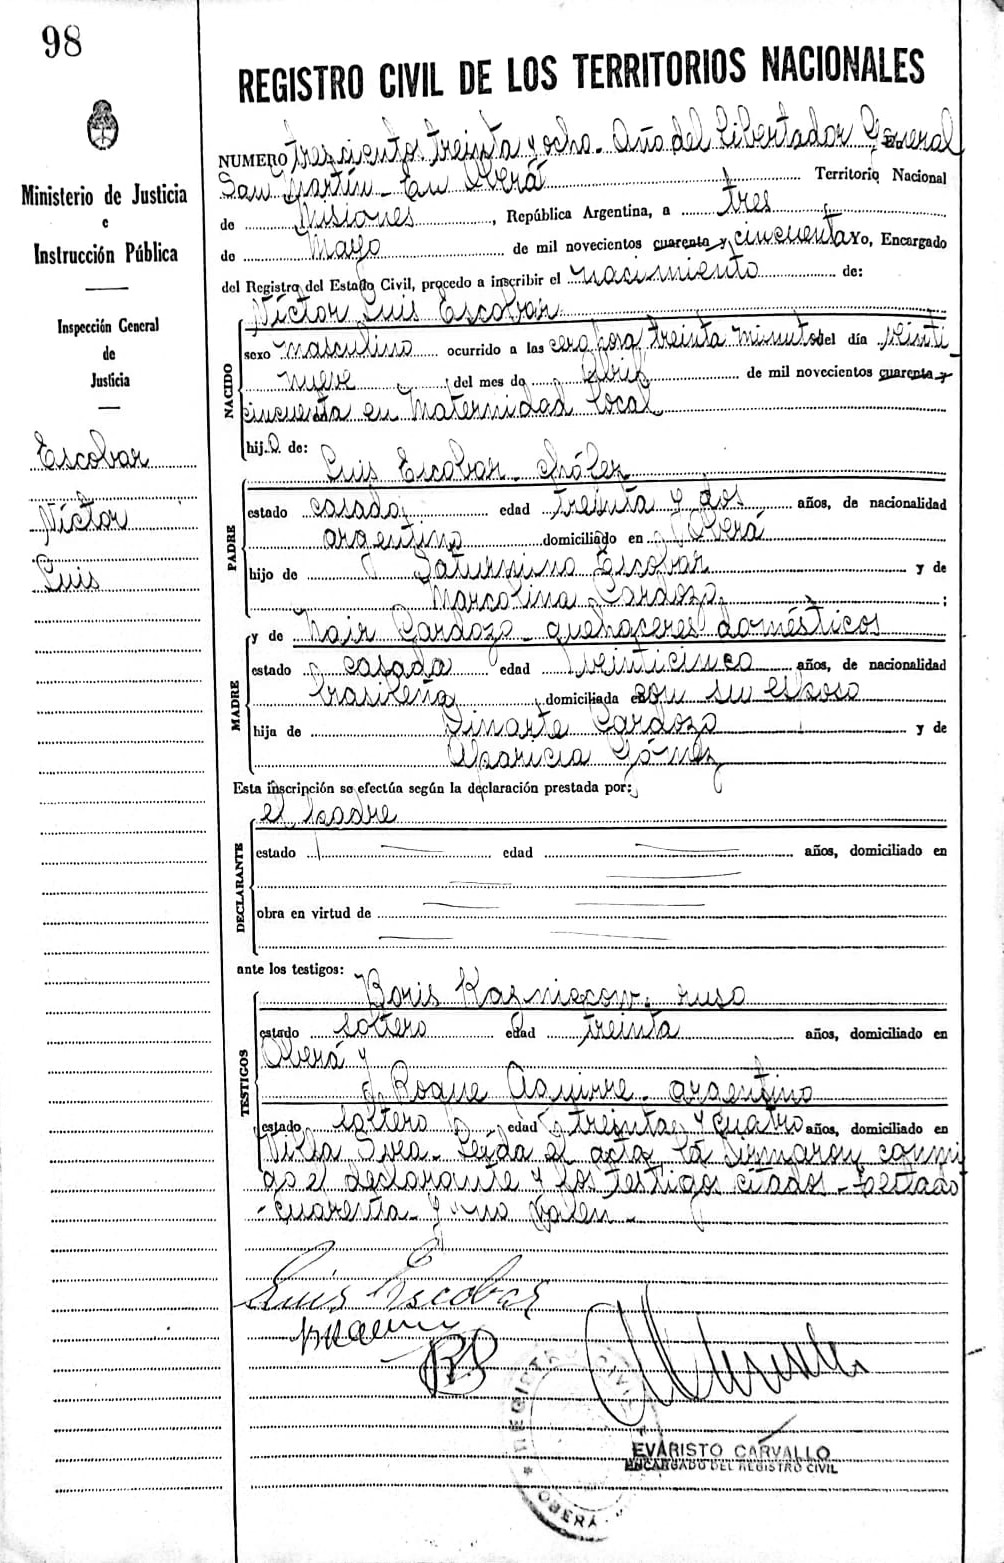 98
Ministerio de Justicia
e
Instrucción Pública
Inspección General
de
Justicia
Escobar
Víctor
Luis
REGISTRO CIVIL DE LOS TERRITORIOS NACIONALES
NUMERO trescientos treinta y ocho. Año del Libertador General
San Martín - En Oberá Territorio Nacional
de Misiones, República Argentina, a tres
de Mayo de mil novecientos cuarenta y cincuenta Yo, Encargado
del Registro del Estado Civil, procedo a inscribir el nacimiento de:
Víctor Luis Escobar
NACIDO
sexo masculino ocurrido a las cero hora treinta minutos del día veinti
nueve del mes de Abril de mil novecientos cuarenta y
cincuenta en Maternidad local
hijo de:
Luis Escobar - chófer
PADRE
estado casado edad treinta y dos años, de nacionalidad
argentino domiciliado en Oberá
hijo de Saturnino Escobar y de
Marcolina Cardozo ;
MADRE
y de Nair Cardozo - quehaceres domésticos
estado casada edad veinticinco años, de nacionalidad
brasileña domiciliada en con su esposo
hija de Dinarte Cardozo y de
Aparicia Gómez
Esta inscripción se efectúa según la declaración prestada por:
el padre
DECLARANTE
estado edad años, domiciliado en
obra en virtud de
ante los testigos:
TESTIGOS
Boris ruso
estado soltero edad treinta años, domiciliado en
Oberá y
Roque Aguirre - argentino
estado soltero edad treinta y cuatro años, domiciliado en
Villa Svea - Leída el acta la firmaron conmi
go el declarante y los testigos citados - Testado
- cuarenta - y - no valen -
Luis Escobar
REGISTRO CIVIL
OBERÁ
EVARISTO CARVALLO
ENCARGADO DEL REGISTRO CIVIL